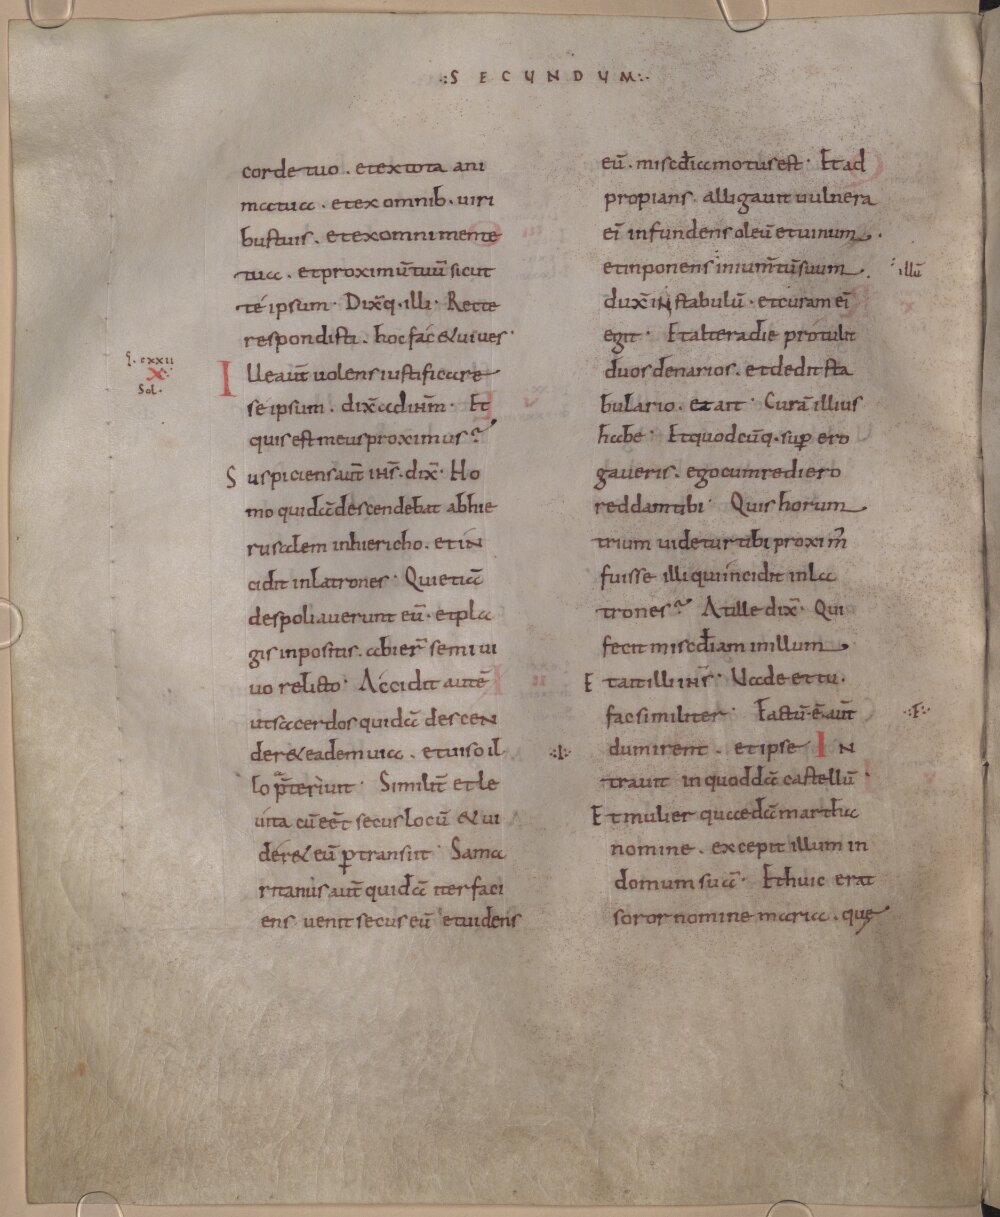 ·:SECUNDUM:·
corde tuo . et ex tota ani
ma tua . et ex omnib. uiri
bus tuis . et ex omni mente
tua . et proximū tuū sicut
te ipsum · Dix̄q. illi · Recte
respondisti . hoc fac & uiues ·
Ille aut̄ uolens iustificare
se ipsum . dix̄ ad ihm̄ · Et
quis est meus proximus?
Suspiciens aut̄ ihs̄ . dix̄ · Ho
mo quidā descendebat ab hie
rusalem in hiericho . et in
cidit in latrones · Qui etiā
despoliauerunt eū · et pla
gis inpositis . abier̄ semiui
uo relicto · Accidit autē
ut sacerdos quidā descen
der& eadem uia . et uiso il
lo p̄teriuit · Similit̄ et le
uita cū eēt secus locū & ui
der& eū ptransiit · Sama
ritanus aut̄ quidā iter faci
ens uenit secus eū et uidens
eū . misc̄dia motus est · Et ad
propians . alligauit uulnera
ei infundens oleū et uinum .
et inponens in ium̄tū suum .
dux̄ in stabulū · et curam ei
egit · Et altera die protulit
duos denarios . et dedit sta
bulario . et ait · Curā illius
habe · Et quodcūq. sup ero
gaueris . ego cum rediero
reddam tibi · Quis horum
trium uidetur tibi proxim̄
fuisse illi qui incidit in la
trones? At ille dix̄ · Qui
fecit misc̄diam in illum
Et ait illi ihs̄ · Uade et tu .
fac similiter · Factū ē aut̄
dum irent . et ipse In
trauit in quoddā castellū ·
Et mulier quaedā martha
nomine . excepit illum in
domum suā · Et huic erat
soror nomine maria . quę
cxxii
x
Sol.
illū
·I·
·F·